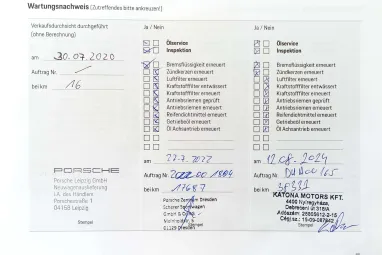 Wartungsnachweis (Zutreffendes bitte ankreuzen)
Verkaufsdurchsicht durchgeführt
(ohne Berechnung)
am 30.07.2020
Auftrag Nr. /
bei km 16
PORSCHE
Porsche Leipzig GmbH
Neuwagenauslieferung
i.A. des Händlers
Porschestraße 1
04158 Leipzig
Stempel
Ja / Nein
Ölservice
Inspektion
Bremsflüssigkeit erneuert
Zündkerzen erneuert
Luftfilter erneuert
Kraftstofffilter entwässert
Kraftstofffilter erneuert
Antriebsriemen geprüft
Antriebsriemen erneuert
Reifendichtmittel erneuert
Getriebeöl erneuert
Öl Achsantrieb erneuert
am 22.7.2022
Auftrag Nr.
bei km 17687
Porsche Zentrum Dresden
GmbH & Co.
01129 Dresden
Stempel
Ja / Nein
Ölservice
Inspektion
Bremsflüssigkeit erneuert
Zündkerzen erneuert
Luftfilter erneuert
Kraftstofffilter entwässert
Kraftstofffilter erneuert
Antriebsriemen geprüft
Antriebsriemen erneuert
Reifendichtmittel erneuert
Getriebeöl erneuert
Öl Achsantrieb erneuert
am 12.08.2024
Auftrag Nr.
bei km
KATONA MOTORS KFT.
4400 Nyíregyháza,
Debreceni út 318/A
Adószám: 25805612-2-15
Cég.sz.: 15-09-087642
Stempel